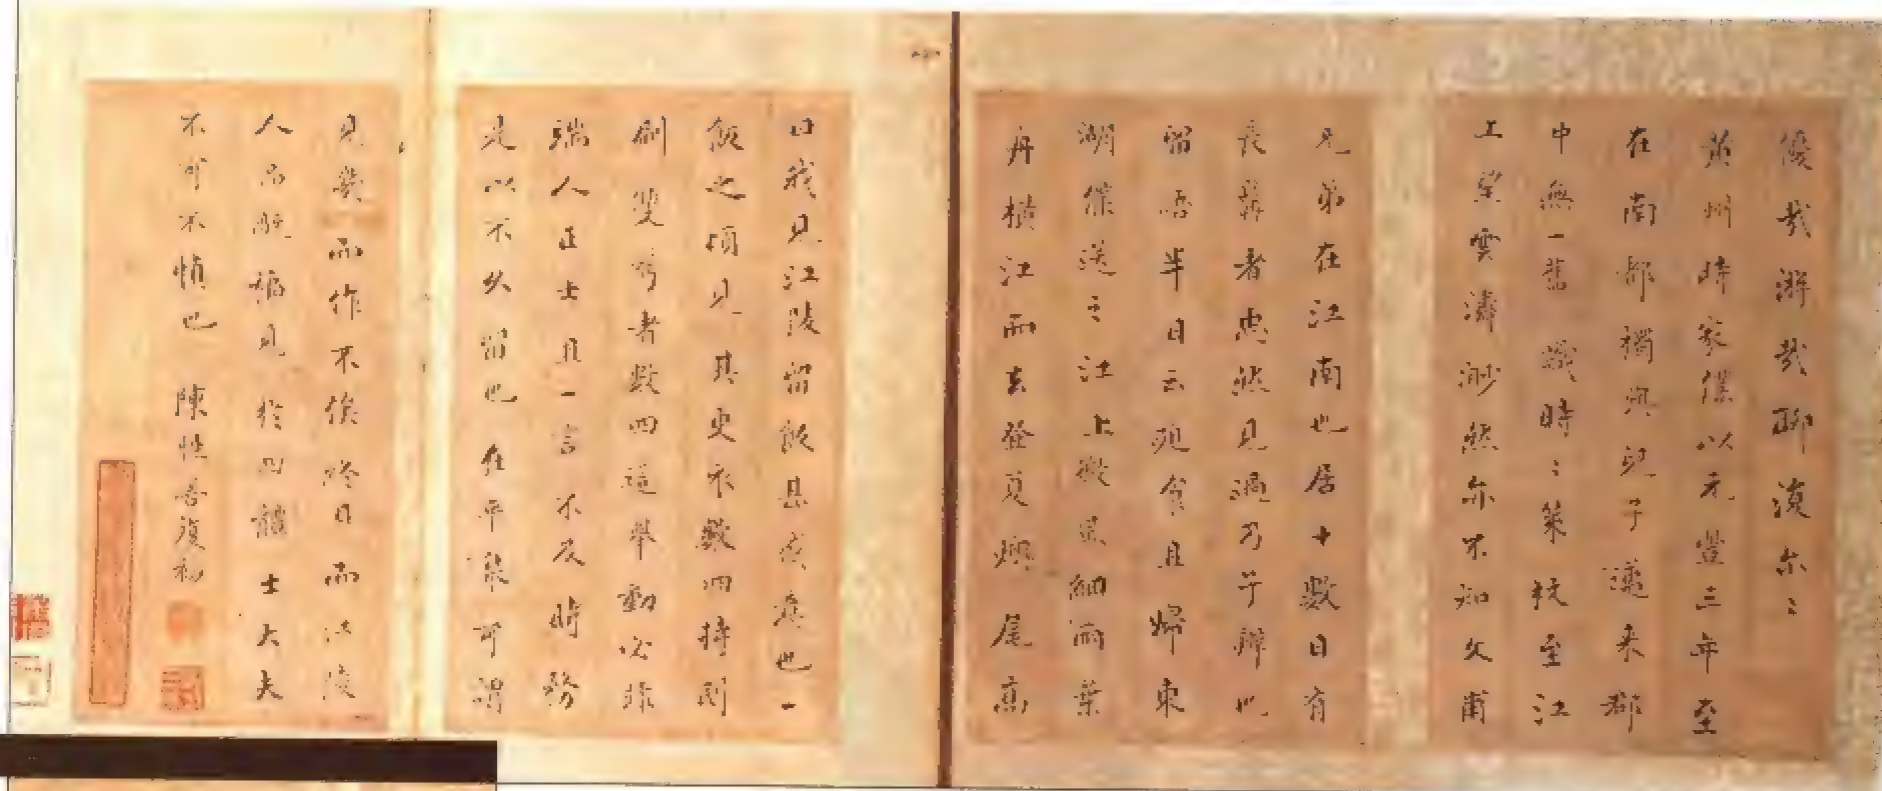 優哉游哉聊復尔〻
黄州時家僕以元豐三年至
在南都獨與兒子邁来郡
中無一舊識時〻策杖至江
上望雲濤渺然亦不知文甫
兄弟在江南也居十數日有
長髯者惠然見過乃子辯也
留語半日云迫寒食且歸東
湖僕送之江上微風細雨葉
舟横江而去登夏隩尾高
曰我見江陵留飯甚虔意也一
飯之頃見其更衣數四持刷
刷雙者數四這舉動必非
端人正士且一言不及時務
是以不久留也在平可謂
見幾而作不俟終日而江陵
人品見於四體士大夫
不可不慎也 陳復初